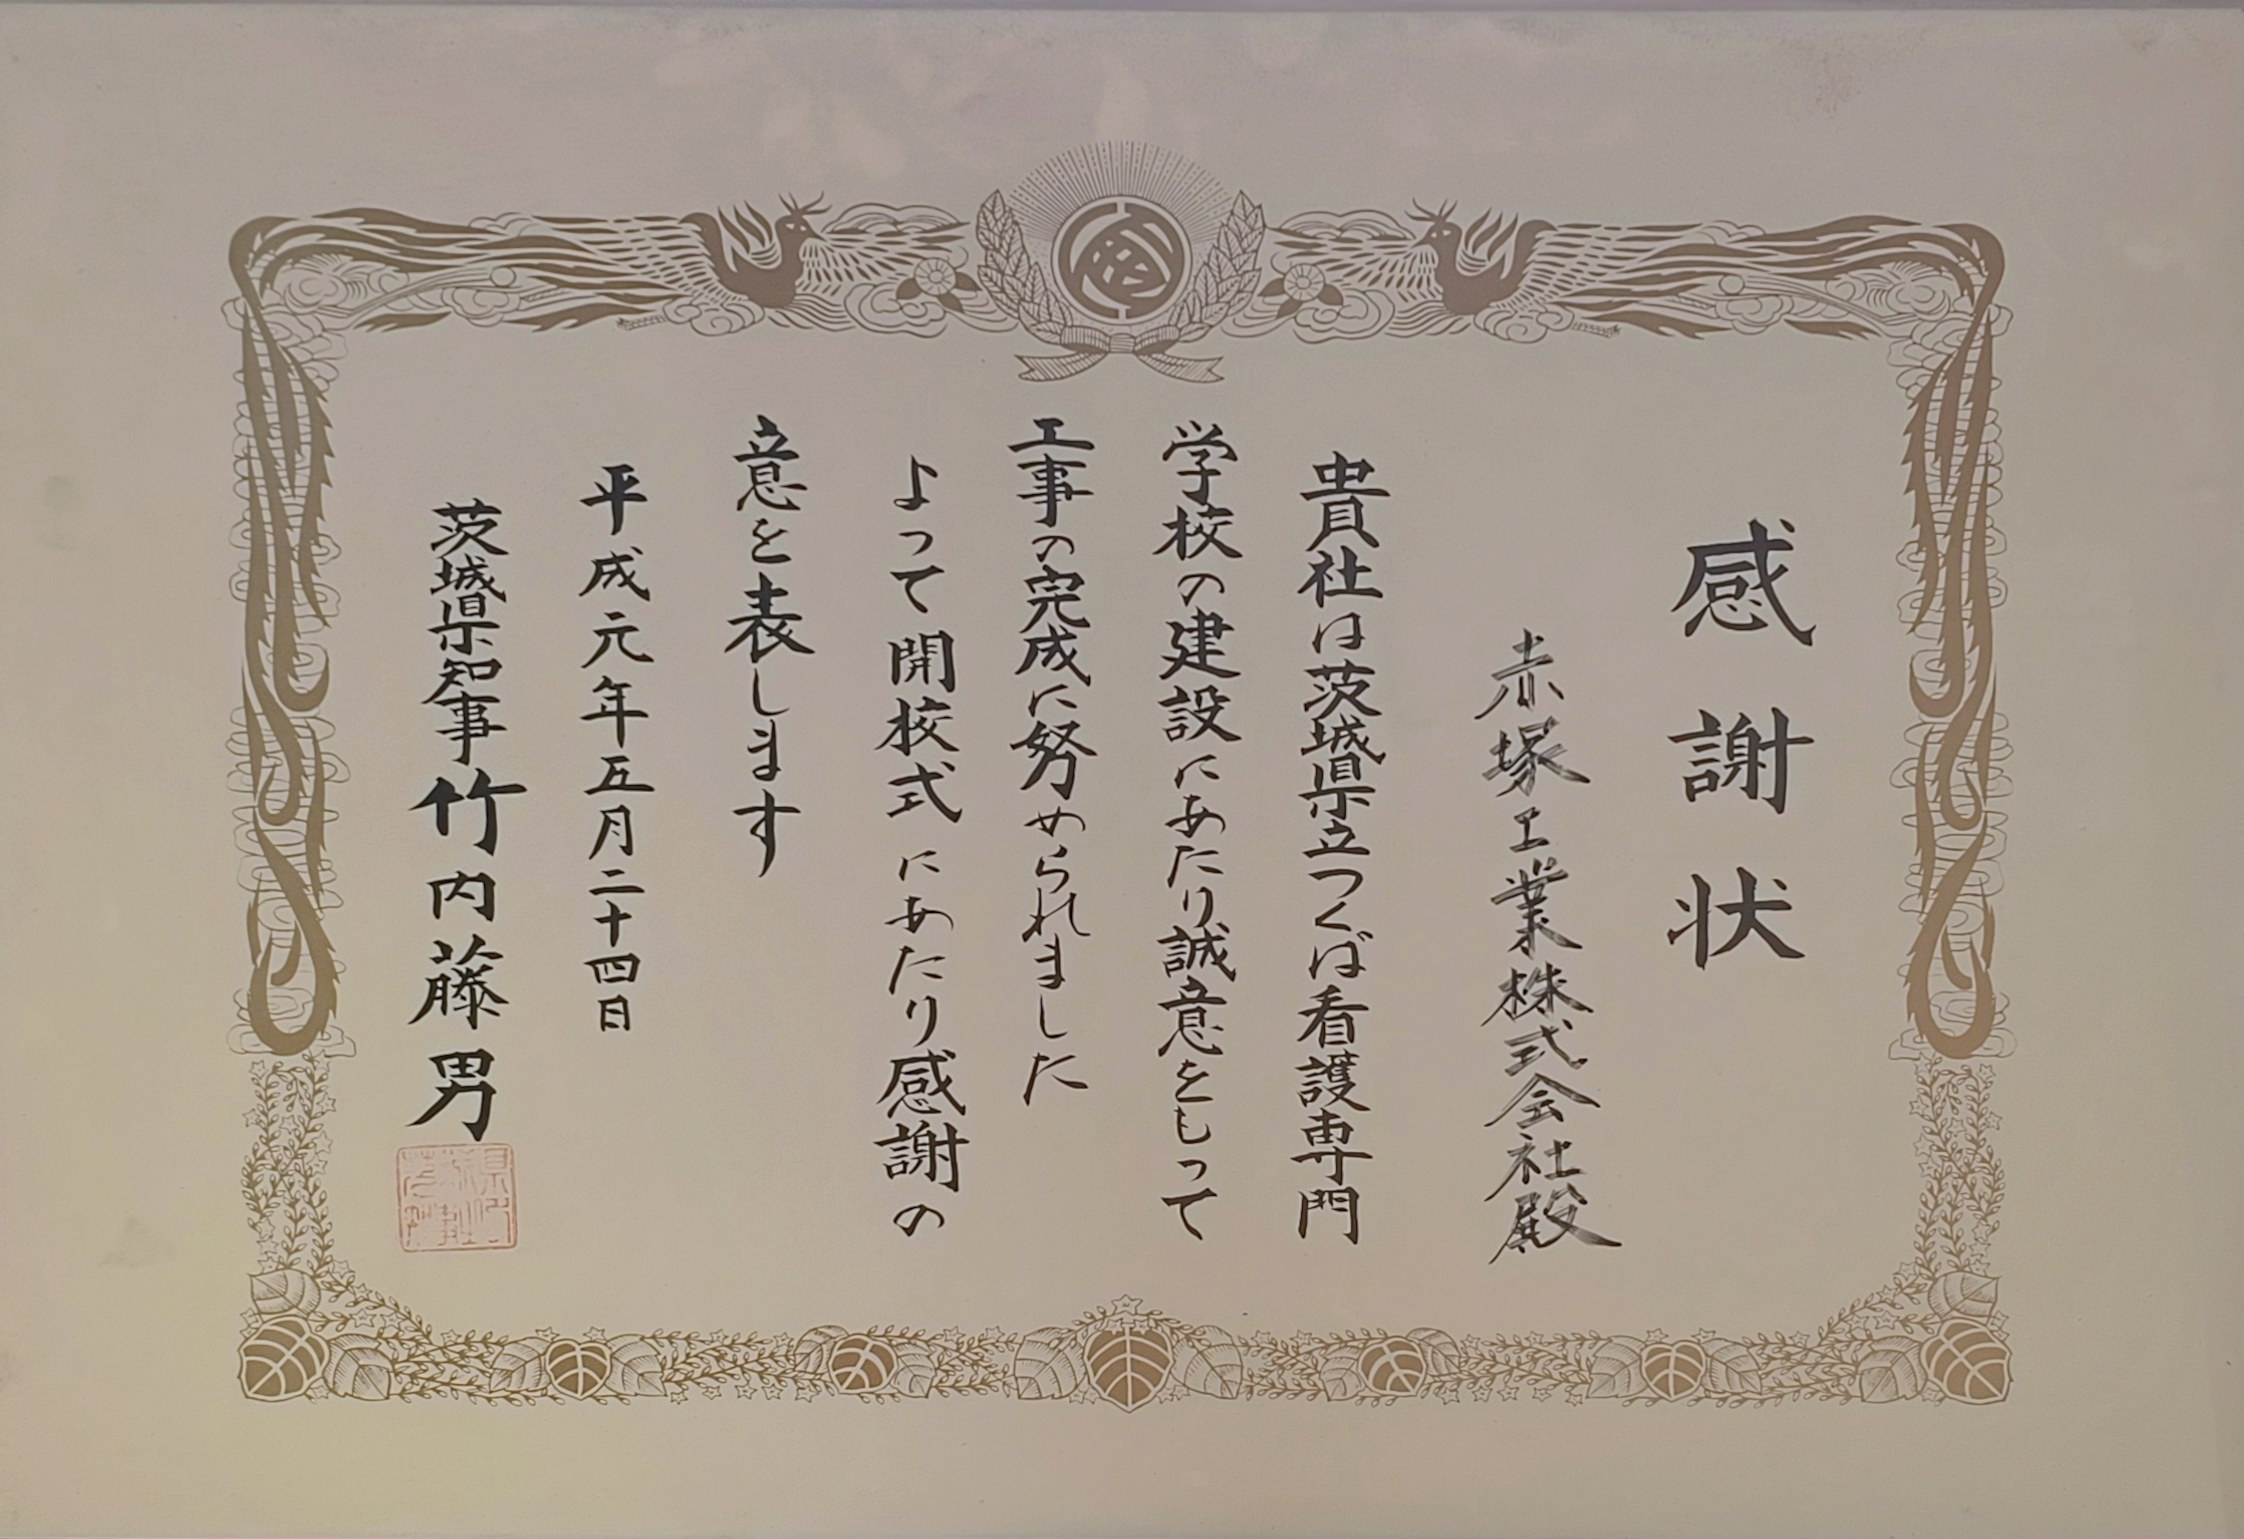 感謝状
赤塚工業株式会社殿
貴社は茨城県立つくば看護専門
学校の建設にあたり誠意をもって
工事の完成に努められました
よって開校式にあたり感謝の
意を表します
平成元年五月二十四日
茨城県知事竹内藤男